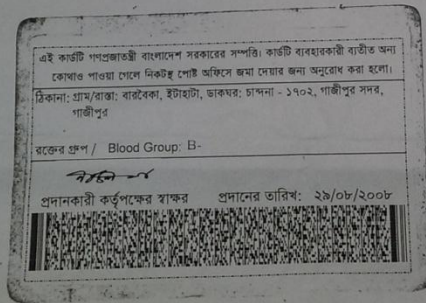 এই কার্ডটি গণপ্রজাতন্ত্রী বাংলাদেশ সরকারের সম্পত্তি। কার্ডটি ব্যবহারকারী ব্যতীত অন্য
কোথাও পাওয়া গেলে নিকটস্থ পোষ্ট অফিসে জমা দেয়ার জন্য অনুরোধ করা হলো।
ঠিকানা: গ্রাম/রাস্তা: বারবৈকা, ইটাহাটা, ডাকঘর: চান্দনা - ১৭০২, গাজীপুর সদর,
গাজীপুর
রক্তের গ্রুপ / Blood Group: B-
প্রদানকারী কর্তৃপক্ষের স্বাক্ষর প্রদানের তারিখ: ২৯/০৮/২০০৮